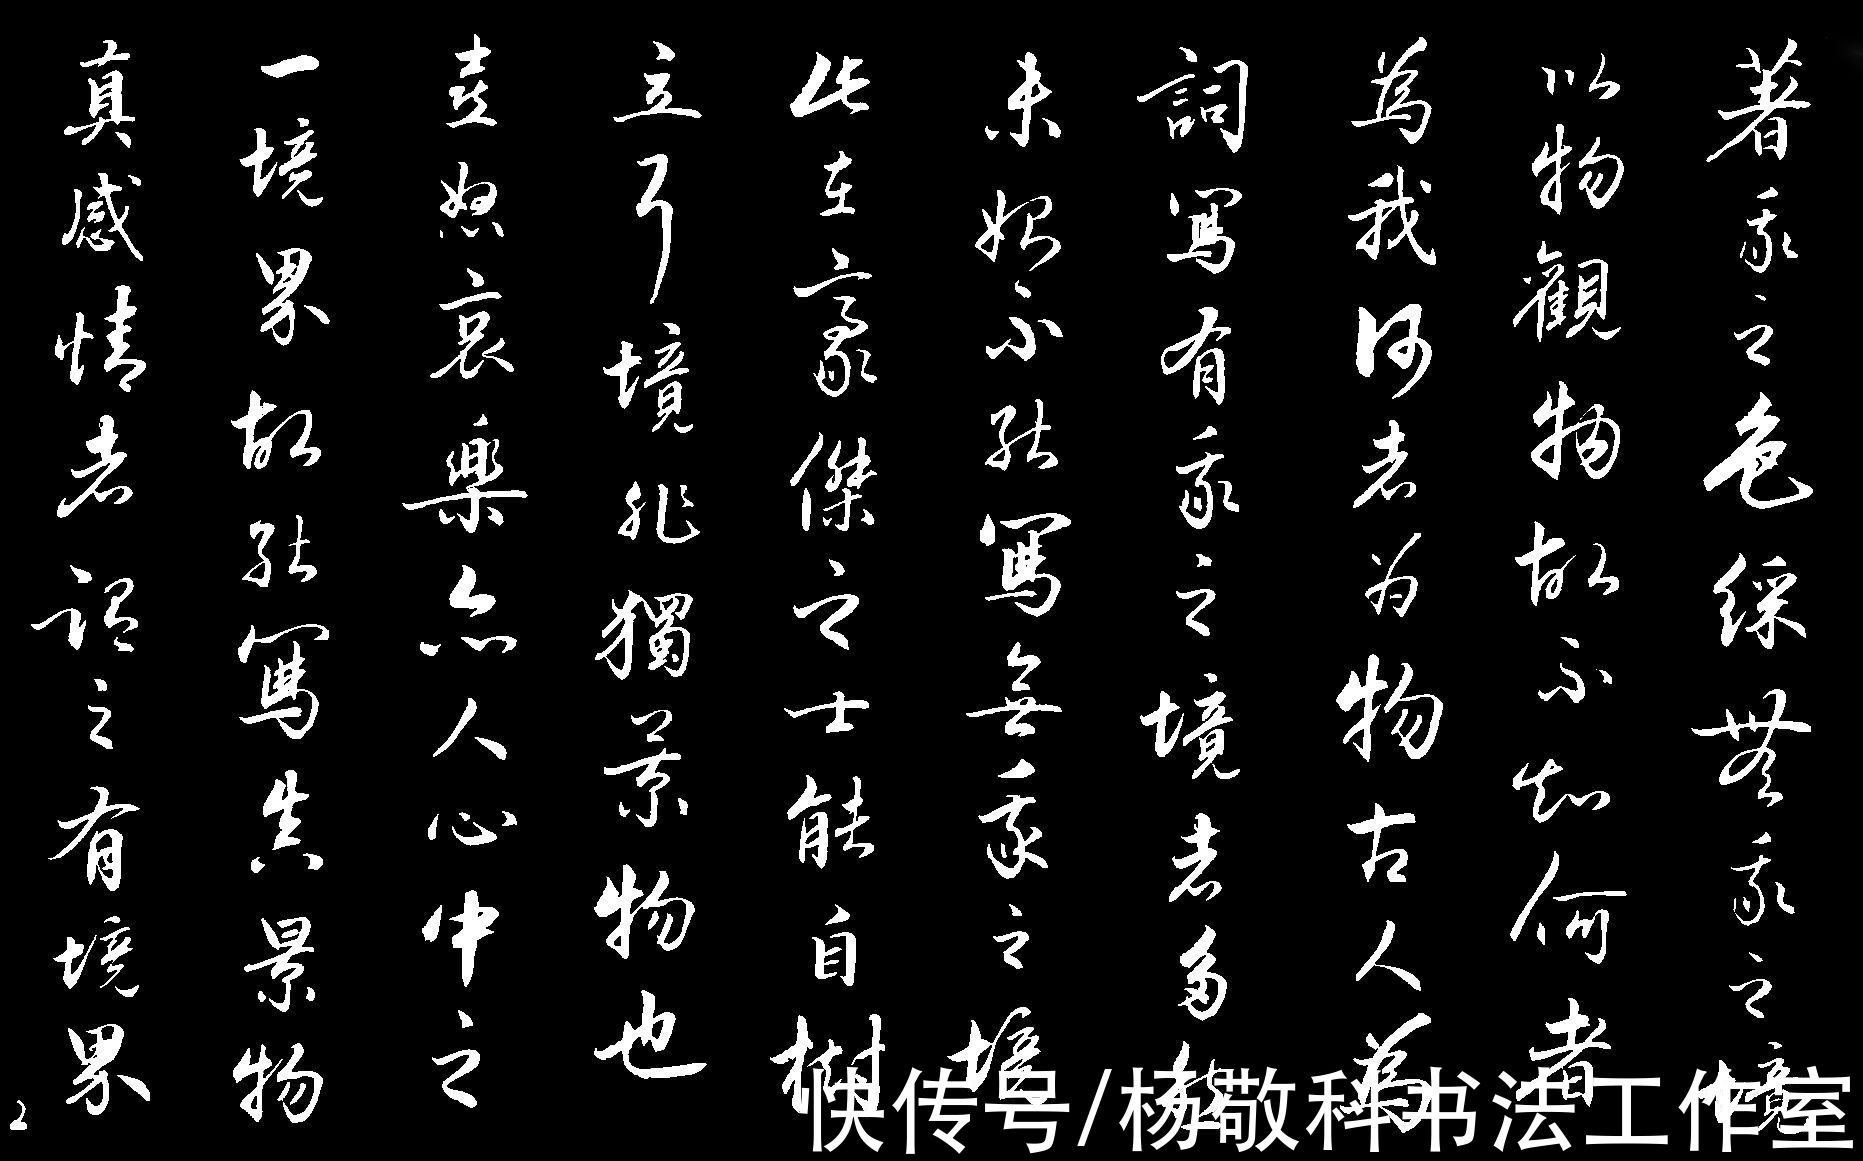 著我之色綵無我之境
以物觀物故不知何者
為我何者为物古人為
詞寫有我之境者多然
未始不能寫無我之境
此在豪傑之士能自樹
立耳境非獨景物也
喜怒哀樂亦人心中之
一境界故能寫真景物
真感情者謂之有境界
快传号/杨敬科书法工作室